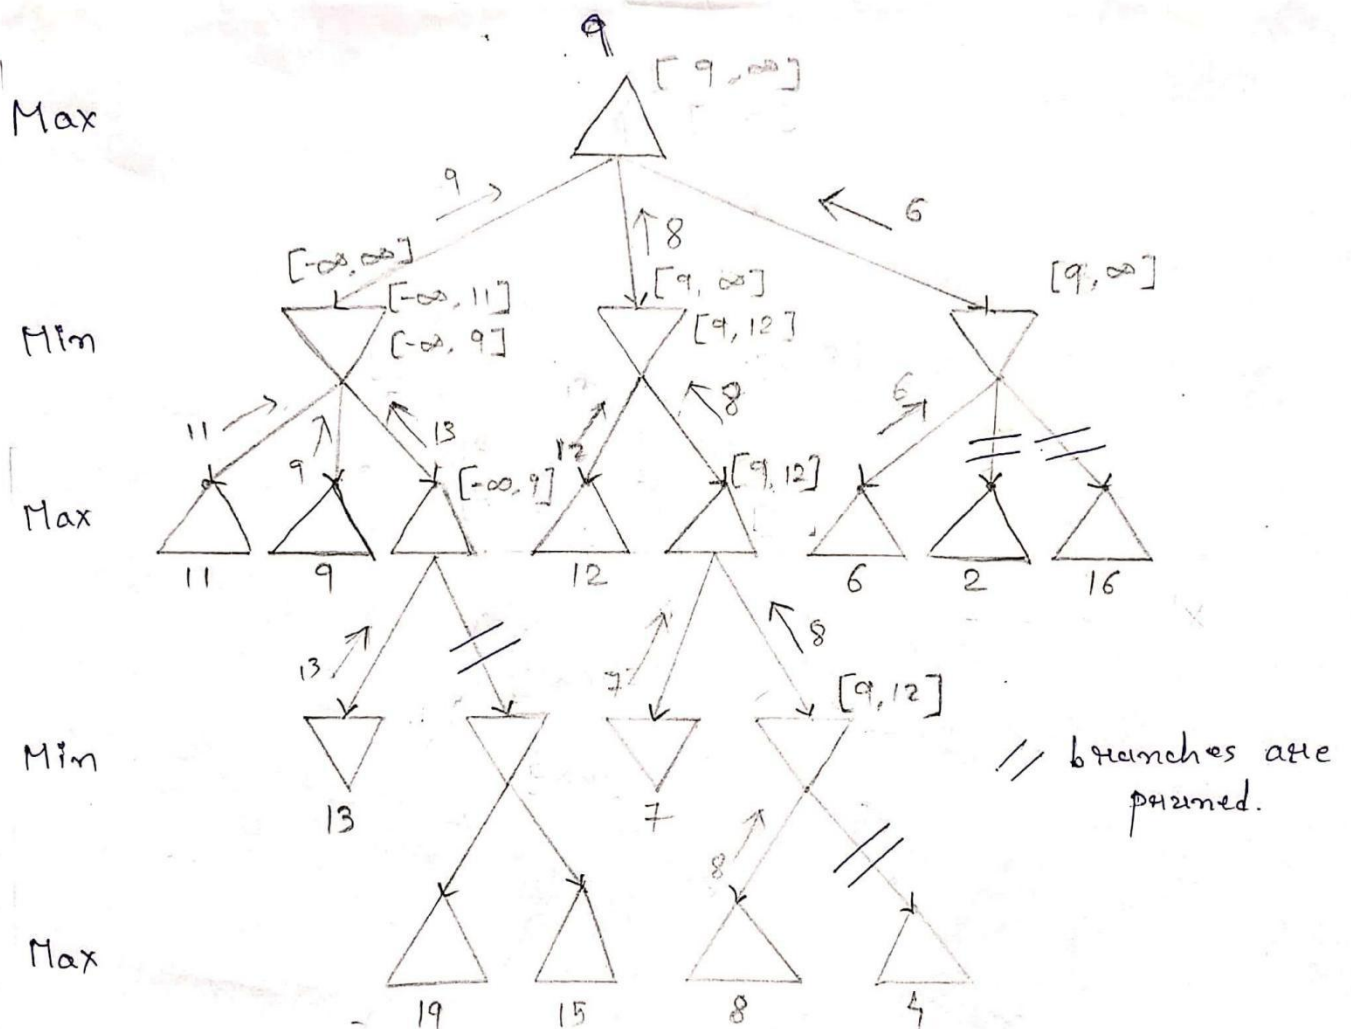 9
[9, ∞]
Max
9
8
6
[-∞, ∞]
[-∞, 11]
[9, ∞]
[9, ∞]
Min
[-∞, 9]
[9, 12]
11
9
13
12
12
8
6
Max
[-∞, 9]
[9, 12]
11
9
12
6
2
16
13
7
8
[9, 12]
Min
13
7
// branches are
pruned.
8
Max
19
15
8
4